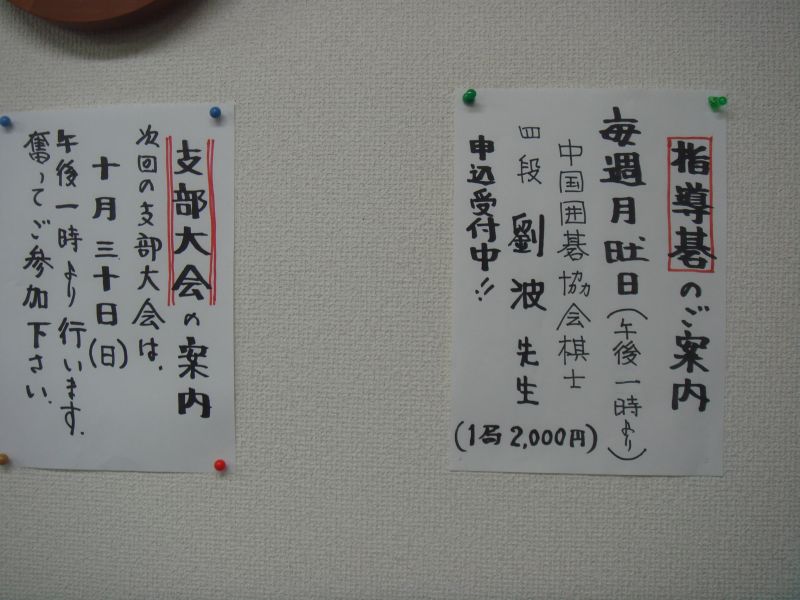 指導碁のご案内
毎週月日土日(午後一時より)
中国囲碁協会棋士
四段 劉波先生
申込受付中!!
(1局2,000円)
支部大会の案内
次回の支部大会は、
十月三十日(日)
午後一時より行います。
奮ってご参加下さい。